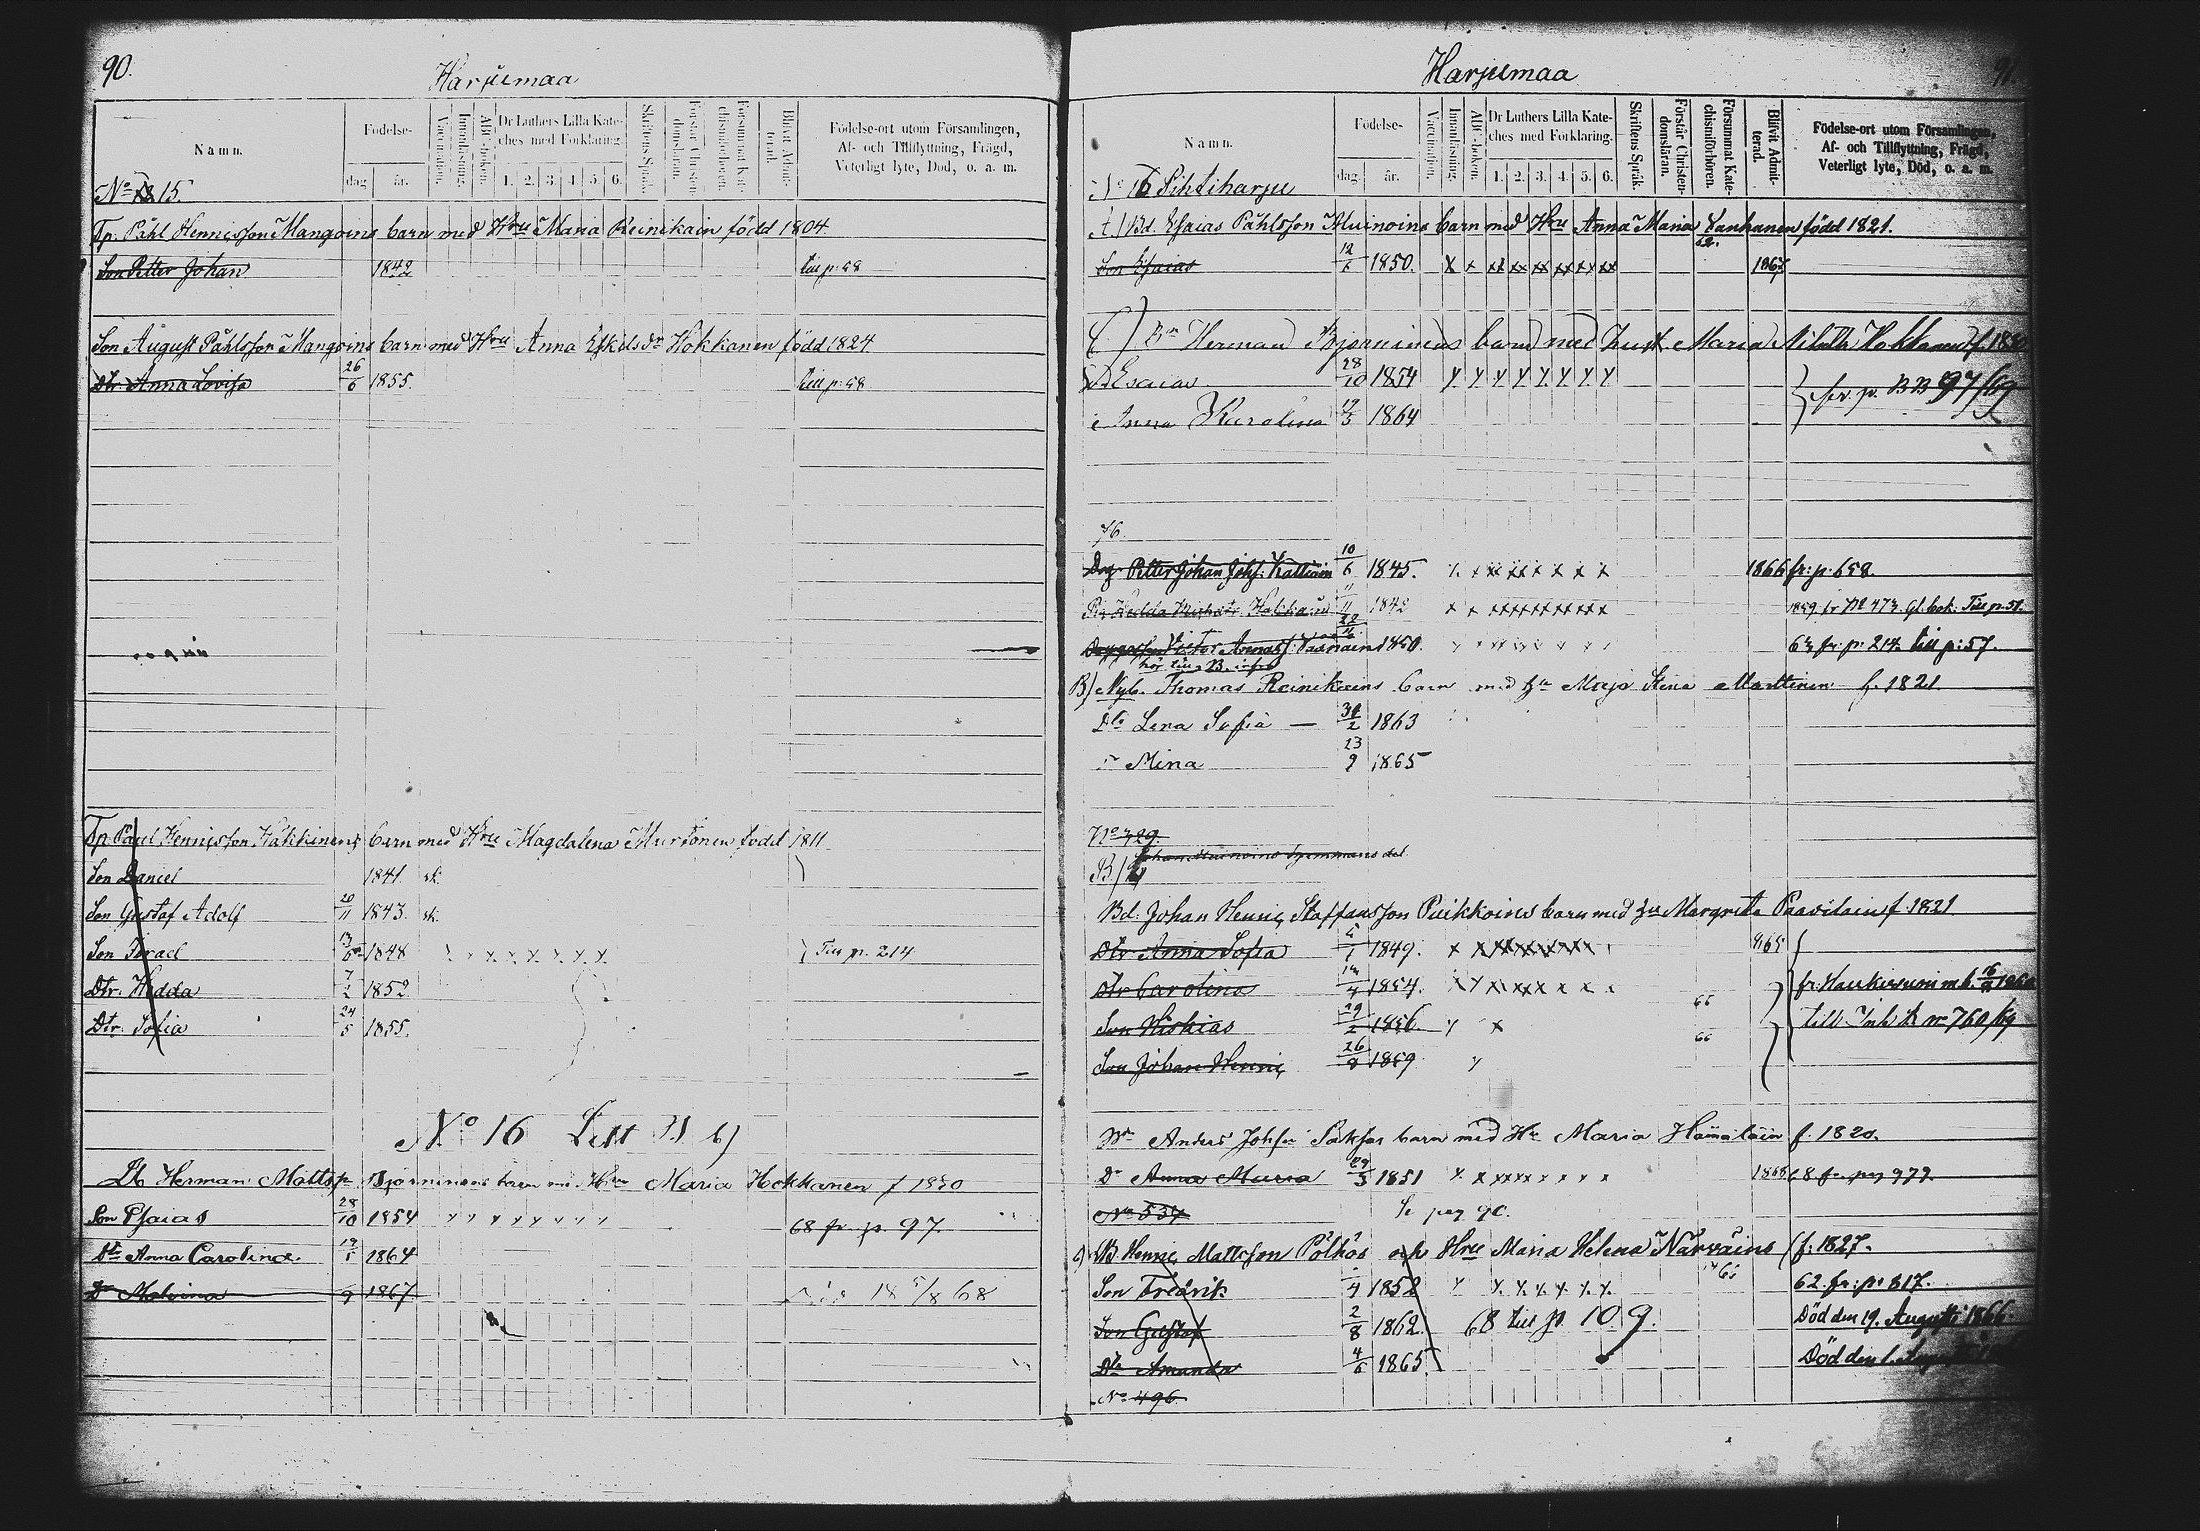 90.
Harjumaa
Namn.
Födelse-
dag
år.
Vaccination.
Innanläsning.
ABC-boken.
Dr Luthers Lilla Kate-
ches med Förklaring.
1. 2. 3. 4. 5. 6.
Skriftens Språk.
Förstår Christen-
domsläran.
Försummat Kate-
chismiförhören.
Blifvit Admit-
terad.
Födelse-ort utom Församlingen,
Af- och Tillflyttning, Frägd,
Veterligt lyte, Död, o. a. m.
No 15.
Tp. Påhl Hennicsson Mangoins barn med Hru Maria Reinikain född 1804
Son Petter Johan 1842 till p. 58
Son August Påhlsson Mangoins barn med Hru Anna Eskilsdr Hokkanen född 1824
Dtr Anna Lovisa 26/6 1855. till p. 58
Tp. Paul Hennicsson Häkkinens barn med Hru Magdalena Murtonen född 1811
Son Daniel 1841. sk.
Son Gustaf Adolf 20/11 1843. sk.
Son Israel 13/ 1848 x x x x x x x Till p. 214
Dtr. Hedda 7/2 1852
Dtr. Sofia 24/5 1855.
No 16 Litt B b)
Herman Matts Björninens barn med Hru Maria Hokkanen f 1830
Son Esaias 28/10 1854 x x x x x x x x 68 fr p. 97.
Dtr Anna Carolina 19/5 1864
Dr Malvina 9 1867 18 5/8 68
Harjumaa
91.
Namn.
Födelse-
dag.
år.
Vaccination.
Innanläsning.
ABC-boken.
Dr Luthers Lilla Kate-
ches med Förklaring.
1. 2. 3. 4. 5. 6.
Skriftens Språk.
Förstår Christen-
domsläran.
Försummat Kate-
chismiförhören.
Blifvit Admit-
terad.
Födelse-ort utom Församlingen,
Af- och Tillflyttning, Frägd,
Veterligt lyte, Död, o. a. m.
No 16 Sihtiharju
A) Bd. Esaias Påhlsson Muinoins barn med Hru Anna Maria Vanhanen född 1821.
62.
Son Esaias 12/ 1850. x x xx xx xx xx xx xx 1867
Herman Björninens barn med hust. Maria Hokkanen f. 1830
Esaias 28/10 1854 x x x x x x x x fr. p. BB 97/69
Anna Karolina 19/5 1864
16.
Drg. Petter Johan Johs: Kattiain 10/6 1845. x x xx xx x x x x 1866 fr: p: 658.
Pig. Hedda 1842 x x xxxxxxxxxx 1859 fr No 473 Gl. bok. Till p. 51.
Victor 1850. 63 fr: p: 214 till p: 57.
hör till B. infra
B) Nyb. Thomas Reinikains barn med hu Maja Stina Marttinen f. 1821
Dtr Lena Sofia — 1863
Mina 23/9 1865
No 329.
Johan Muinoins hemmans del
B)
Bd. Johan Henric Staffansson Puikkoines barn med hu Margreta Paavilain f 1821
Dtr Anna Sofia 1849. x x xxxxxxxxx 65
Dtr Carolina 1854. x x xx xxx x x x 66 fr: Haukivuori
Son Hiskias 29/2 1856. x x 66 till Inh. k no 760/69
Son Johan Henric 26/8 1859 x
Anders Johsn Saksas barn med Hu Maria Hämäläin f. 1820.
Dr Anna Maria 29/3 1851 x x xxxx x x x x 1868 68 fr pag 972
No 537 Se pag 90.
Henric Mattsson Pölkös och Hru Maria Helena Närväins f. 1827.
Son Fredrik 1852 x x x x x x x 62. fr: p: 817.
Son Gustaf 2/8 1862. 68 till p. 109. Död den 19. Augusti 1866.
Dtr Amanda 4/6 1865. Död den 1.
No 496.